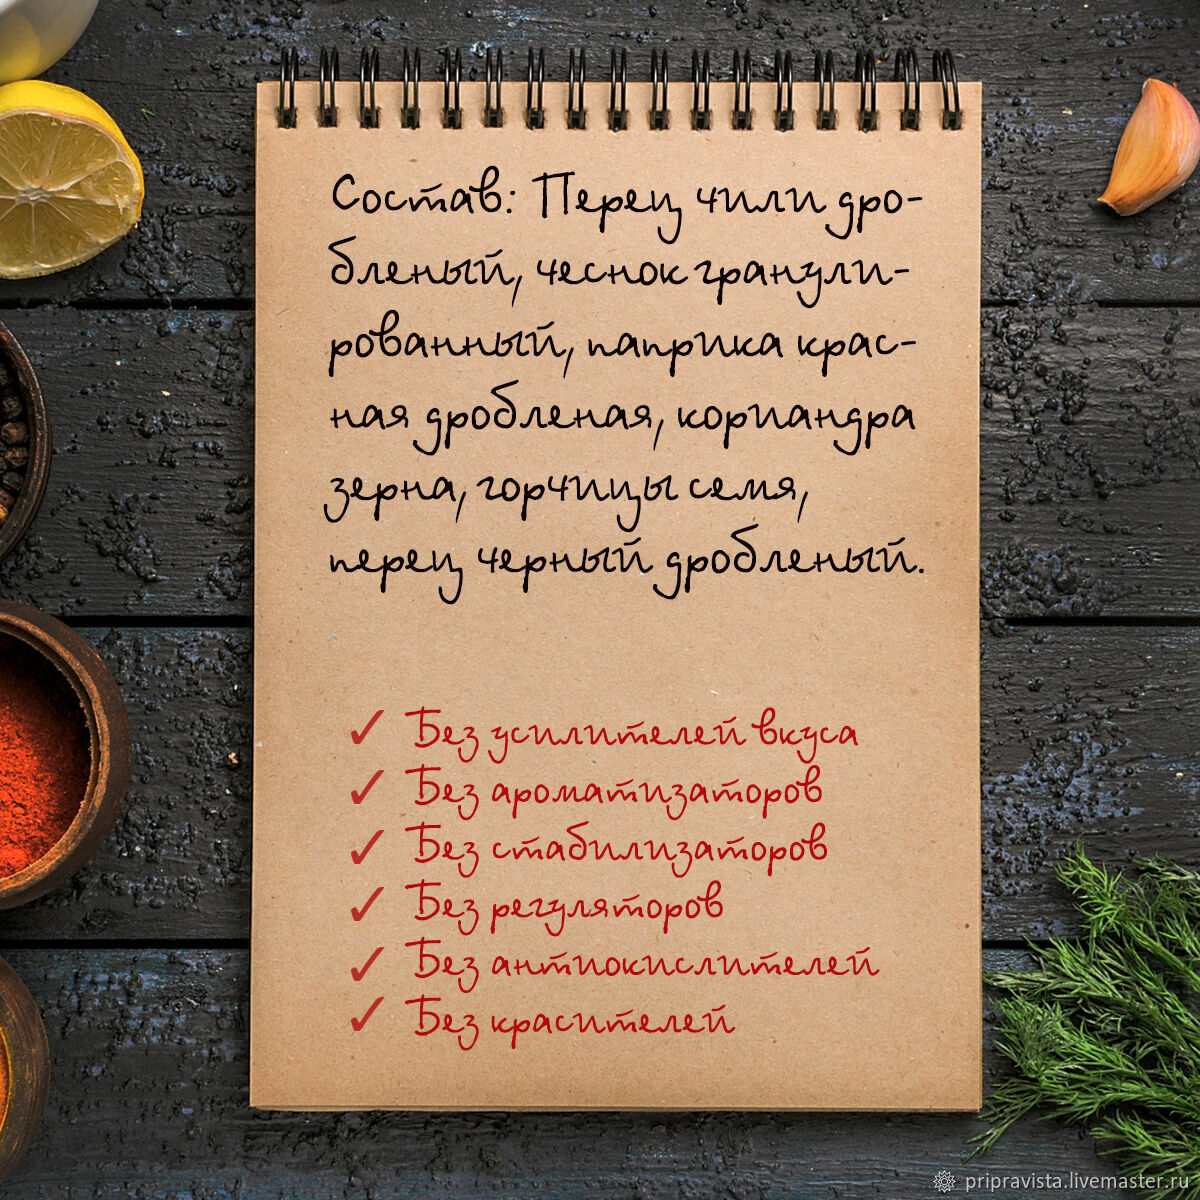 Состав: Перец чили дро-
бленый, чеснок гранули-
рованный, паприка крас-
ная дробленая, кориандра
зерна, горчицы семя,
перец черный дробленый.
✓ Без усилителей вкуса
✓ Без ароматизаторов
✓ Без стабилизаторов
✓ Без регуляторов
✓ Без антиокислителей
✓ Без красителей
pripravista.livemaster.ru